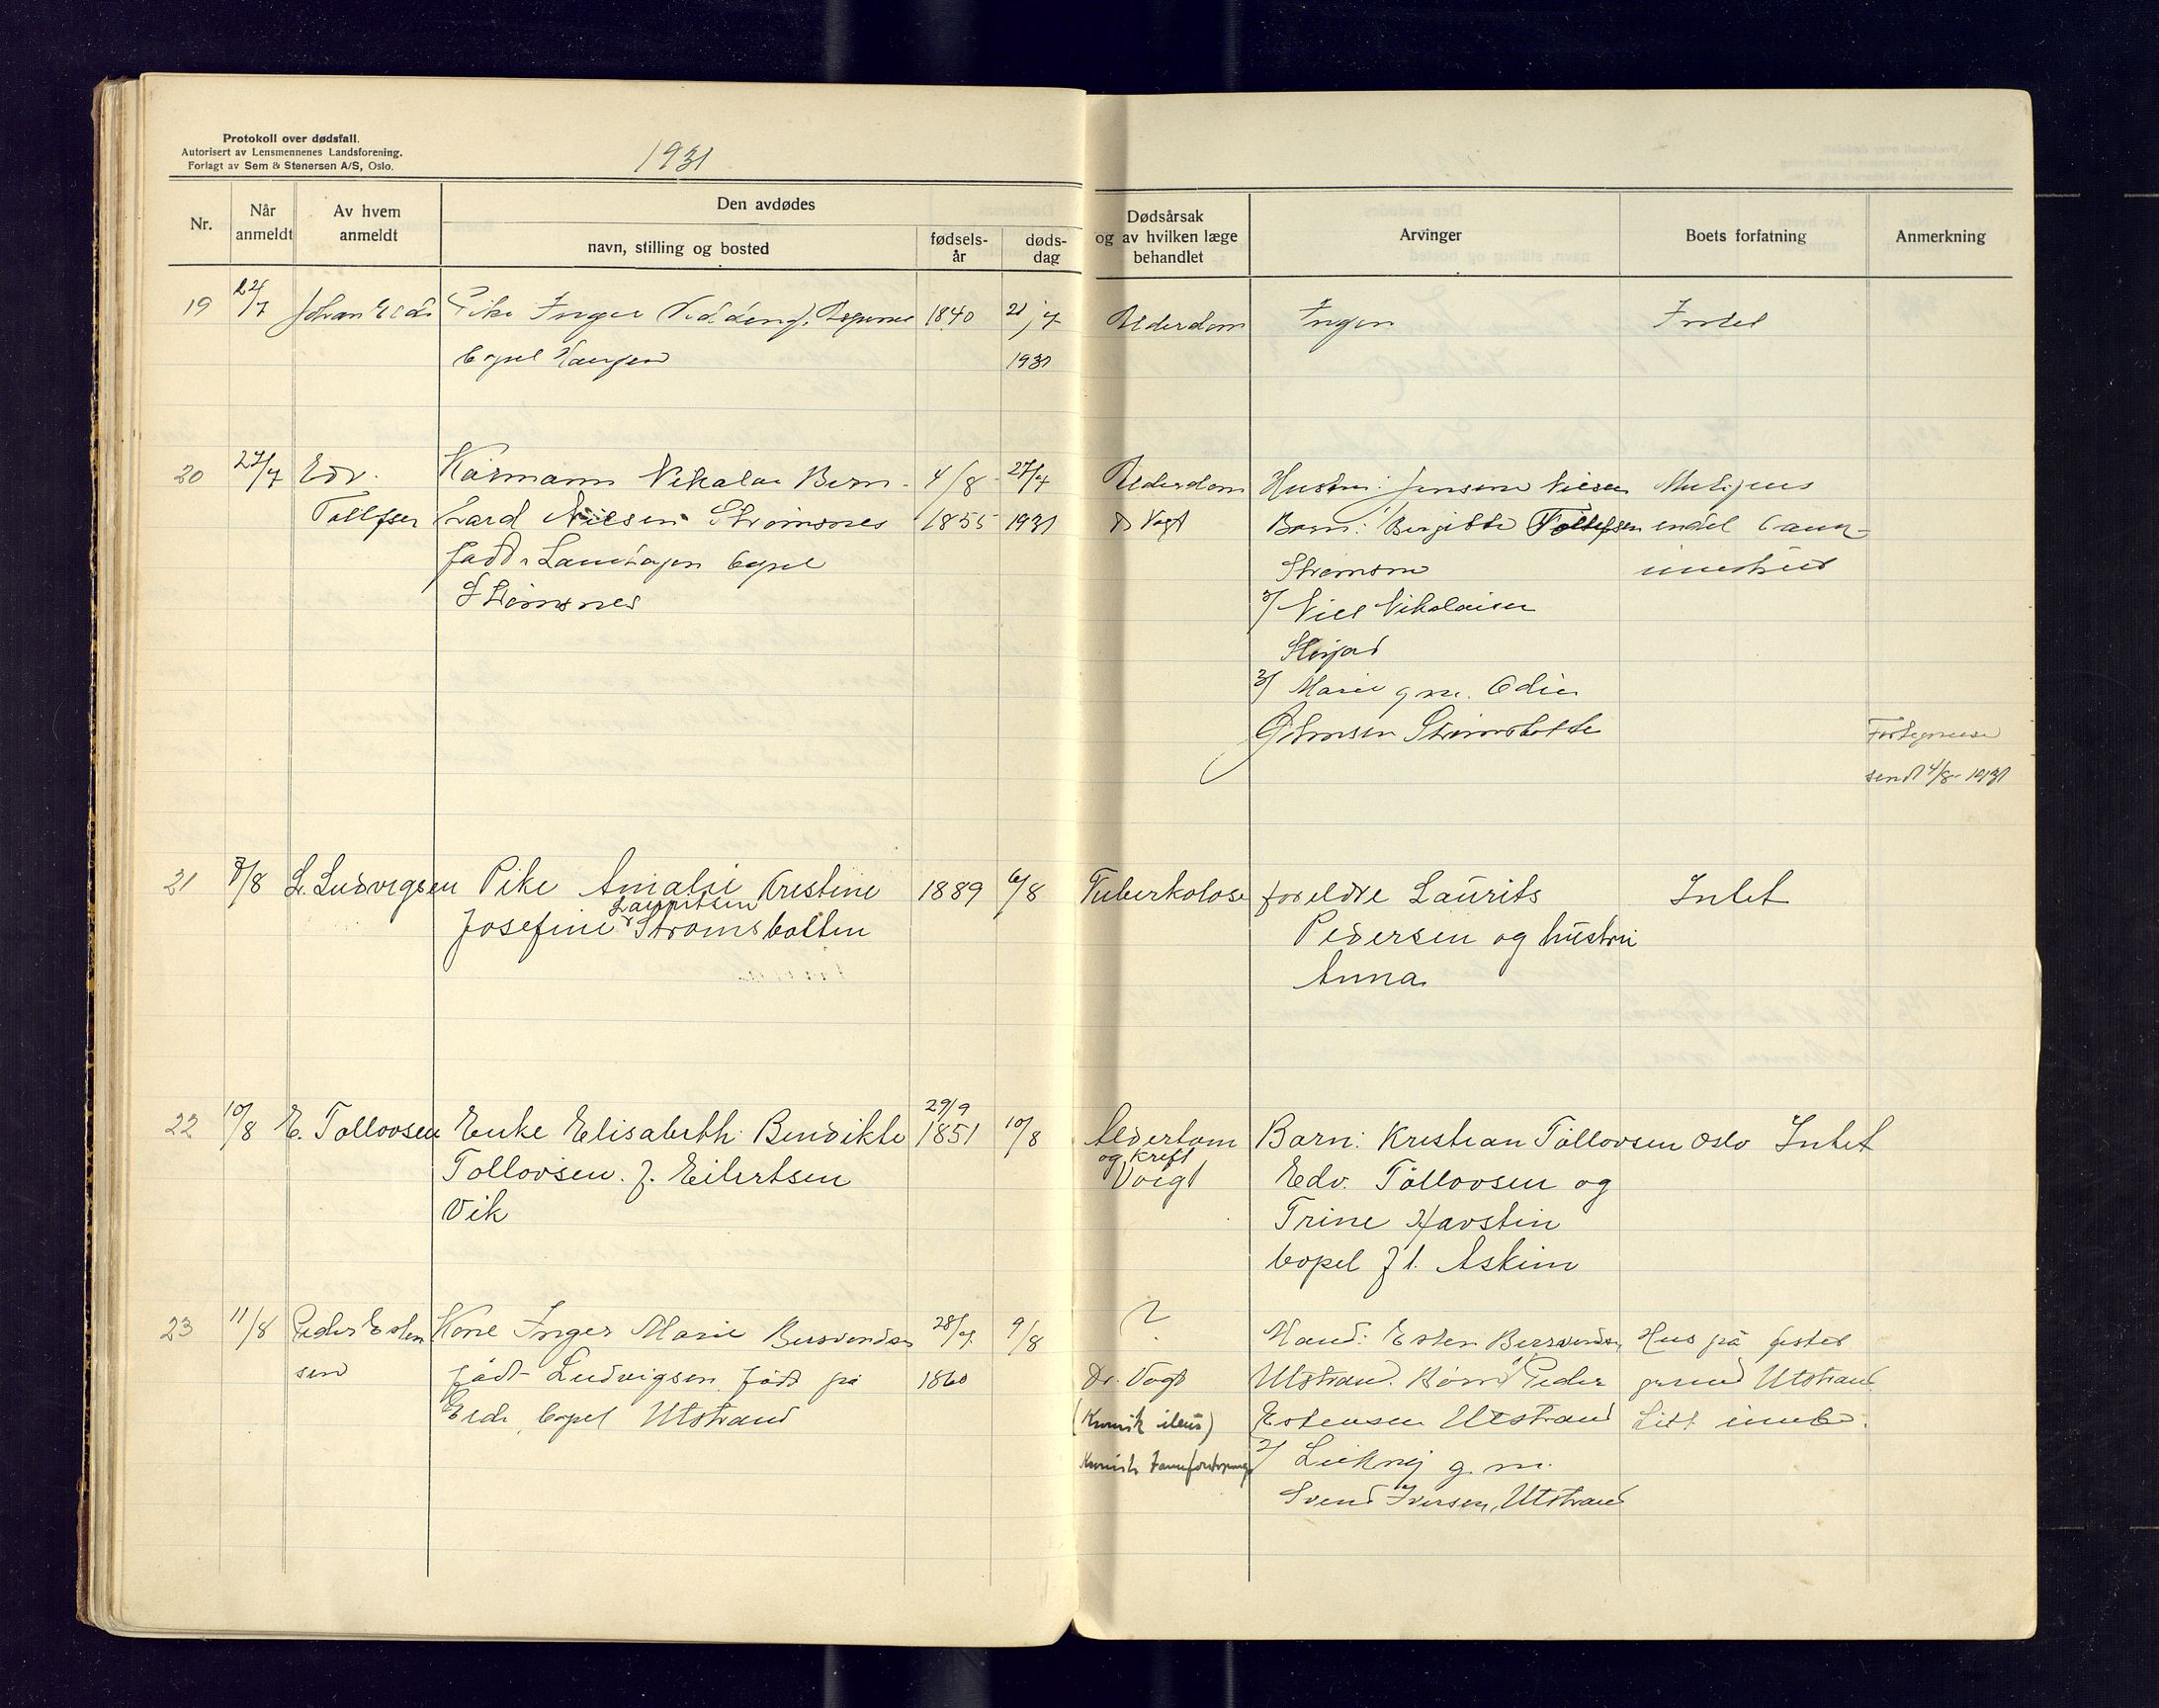 Protokoll over dødsfall.
Autorisert av Lensmennenes Landsforening.
Forlagt av Sem & Stenersen A/S, Oslo.
1931
Nr.
Når anmeldt
Av hvem anmeldt
Den avdødes
navn, stilling og bosted
fødsels-år
døds-dag
Dødsårsak og av hvilken læge behandlet
Arvinger
Boets forfatning
Anmerkning
19 22/7 Johan Pike Inger 1840 21/7 Alderdom Ingen Intet
bopel Haugen 1931
20 27/7 Edv. Kårmann Nikolai Bern- 4/8 27/7 Alderdom Hustru: Jensine Nilsen Muligens
Tollfsen hard Nilsen Strømsnes 1855 1931 Dr Vogt Barn: Bergitte Tollefsen endel
født bopel Strømsnes
Strømsnes 2/ Nils Nikolaisen
3/ Marie g.m. Odin
Johnsen Strømsbotten Fortegnelse
sendt 4/8-1931
21 8/8 L. Ludvigsen Pike Amalie Kristine 1889 6/8 Tuberkolose foreldre Laurits Intet
Lauritsen
Josefine Strømsbotten Pedersen og hustru
Anna
29/9
22 10/8 E. Tollovsen Enke Elisabeth Bendikte 1851 10/8 Alderdom Barn: Kristian Tollovsen Oslo Intet
og Kreft
Tollovsen. f. Eilertsen Voigt Edv. Tollovsen og
Vik Trine Havstin
bopel f t. Askim
23 11/8 Peder Esten Kone Inger Marie Bersvendsen 28/7 9/8 ? Mand: Esten Bersvendsen Hus på festet
sen født Ludvigsen født på 1860 Dr. Vogt Utstrand. Barn 1/ Peder grund Utstrand
bopel Utstrand (Kronisk ileus) Estensen Utstrand Litt innbo.
Kronisk 2/ g. m.
Svend Iversen, Utstrand